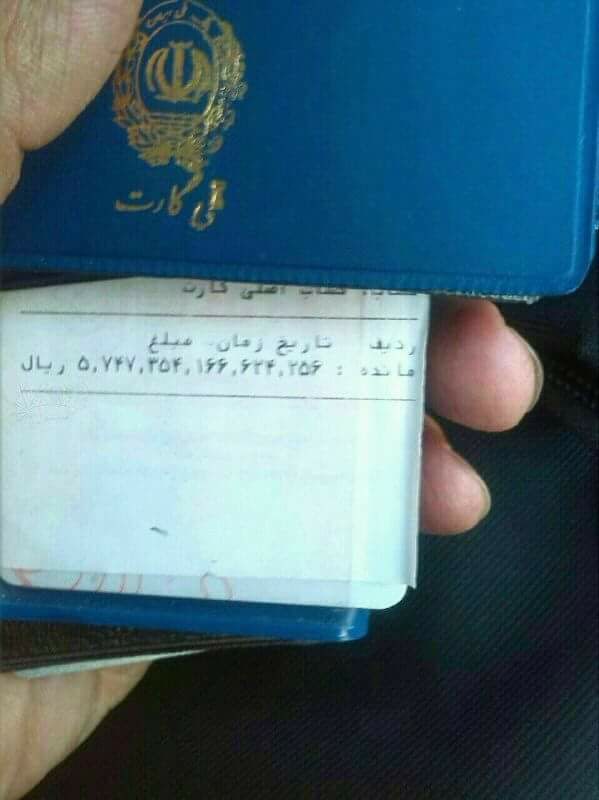 بانک ملی ایران
ملی کارت
حساب: حساب اصلی کارت
ردیف تاریخ زمان. مبلغ
مانده : ۵,۷۴۷,۳۵۴,۱۶۶,۶۲۴,۲۵۶ ریال